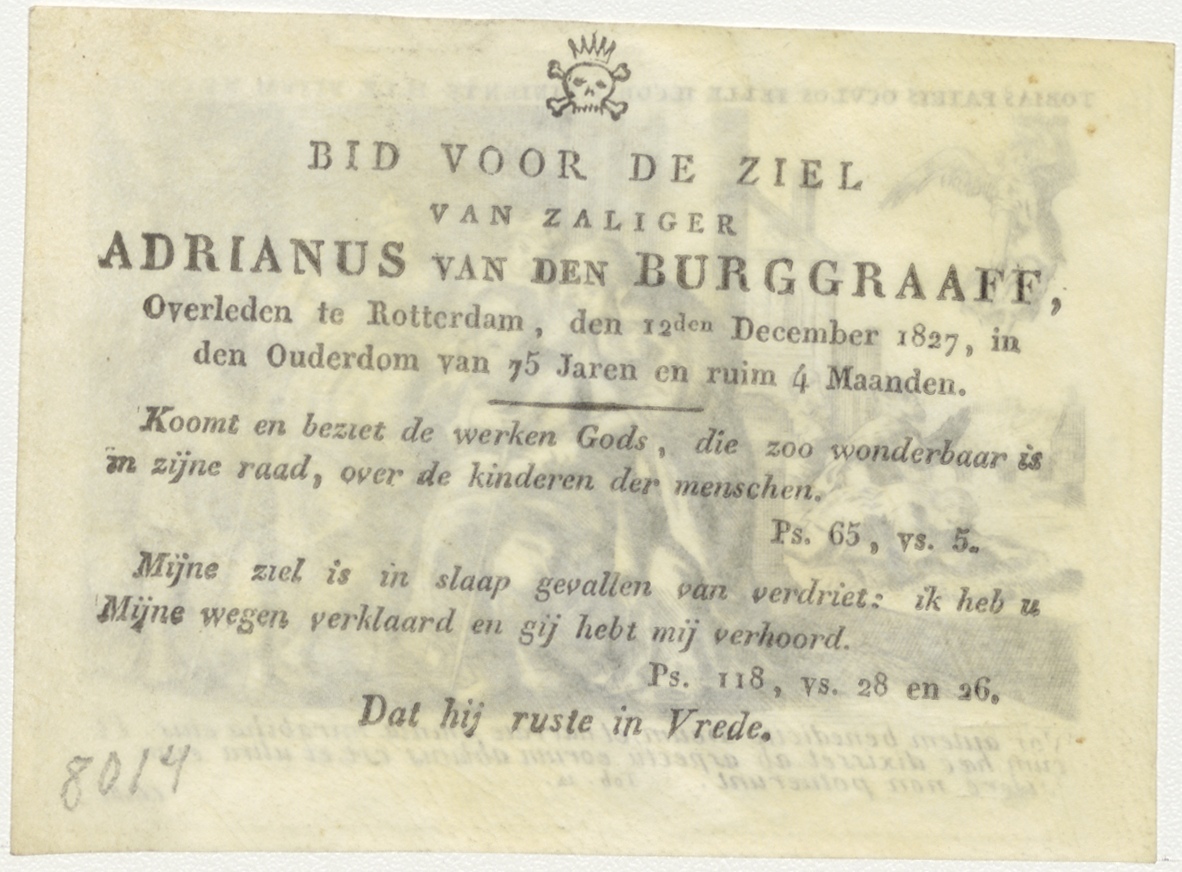 BID VOOR DE ZIEL
VAN ZALIGER
ADRIANUS VAN DEN BURGGRAAFF,
Overleden te Rotterdam, den 12den December 1827, in
den Ouderdom van 75 Jaren en ruim 4 Maanden.
Koomt en beziet de werken Gods, die zoo wonderbaar is
in zijne raad, over de kinderen der menschen.
Ps. 65, vs. 5.
Mijne ziel is in slaap gevallen van verdriet: ik heb u
Mijne wegen verklaard en gij hebt mij verhoord.
Ps. 118, vs. 28 en 26.
Dat hij ruste in Vrede.
8014